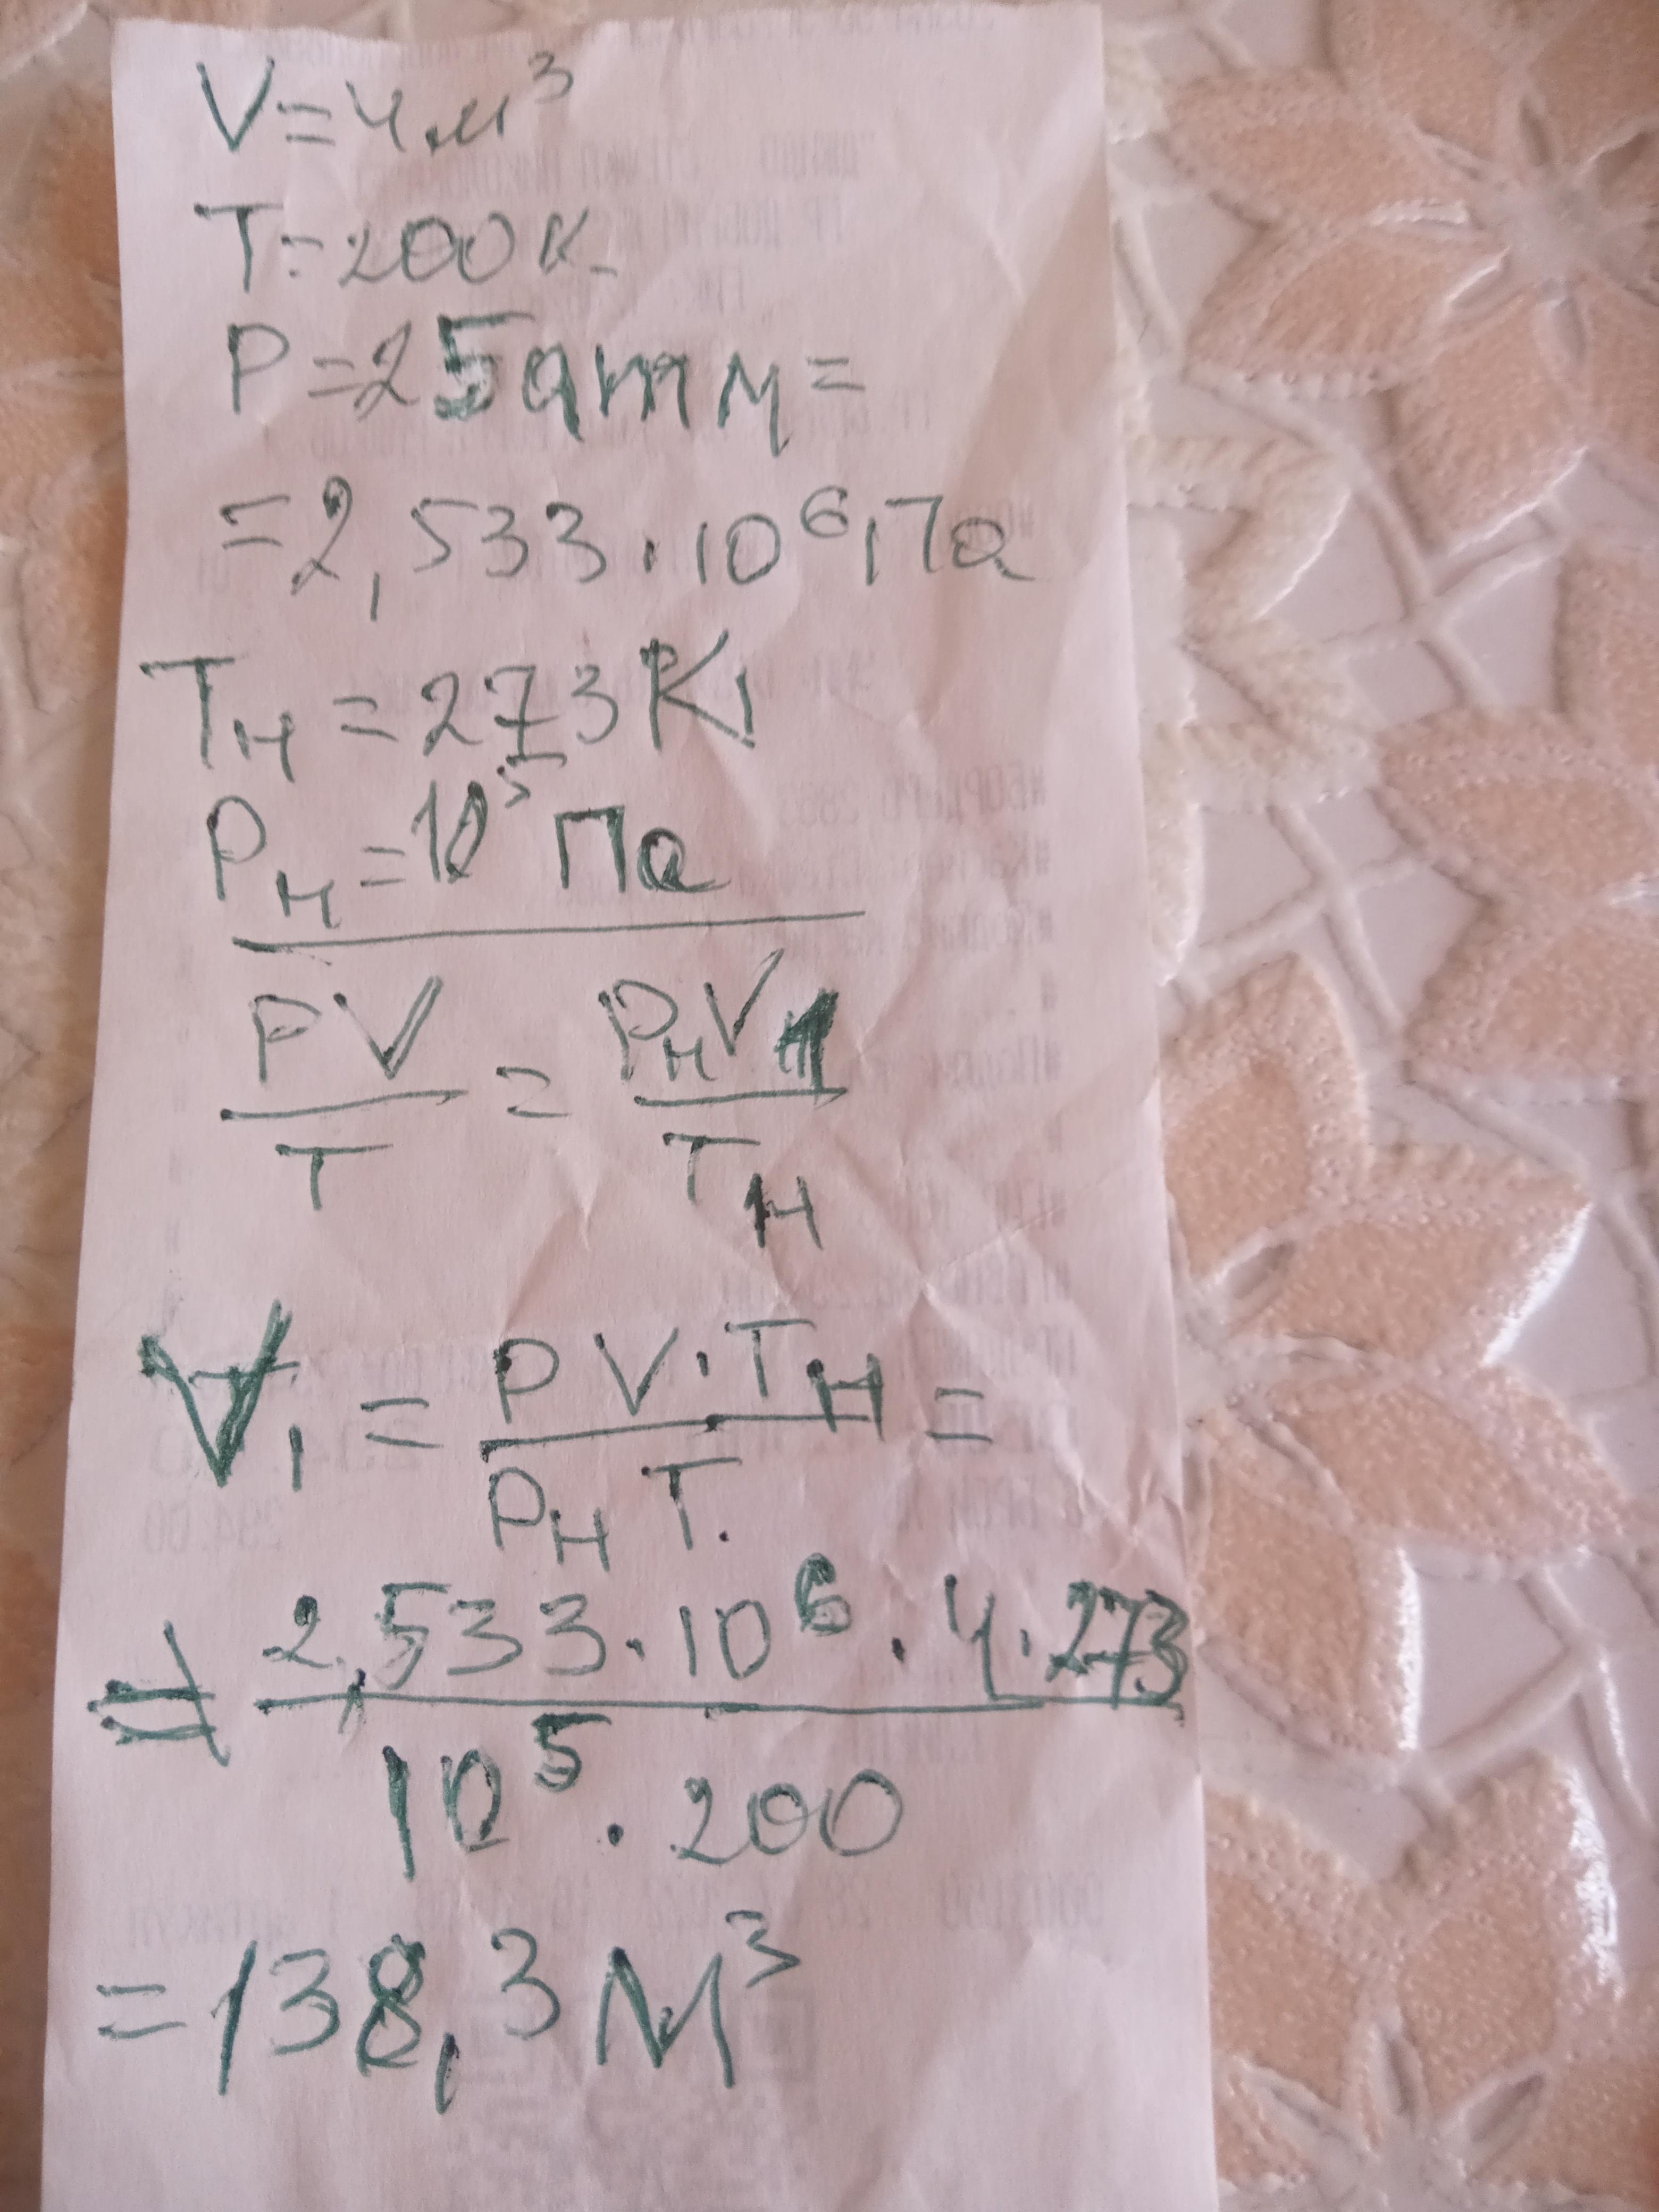 V=4м³
T=200К.
P=25атм=
=2,533·10⁶Па
Tн=273К
Pн=10⁵Па
PV/T = PнV1/Tн
V₁=PV·Tн/PнT.=
=2,533·10⁶·4·273/10⁵·200
=138,3м³